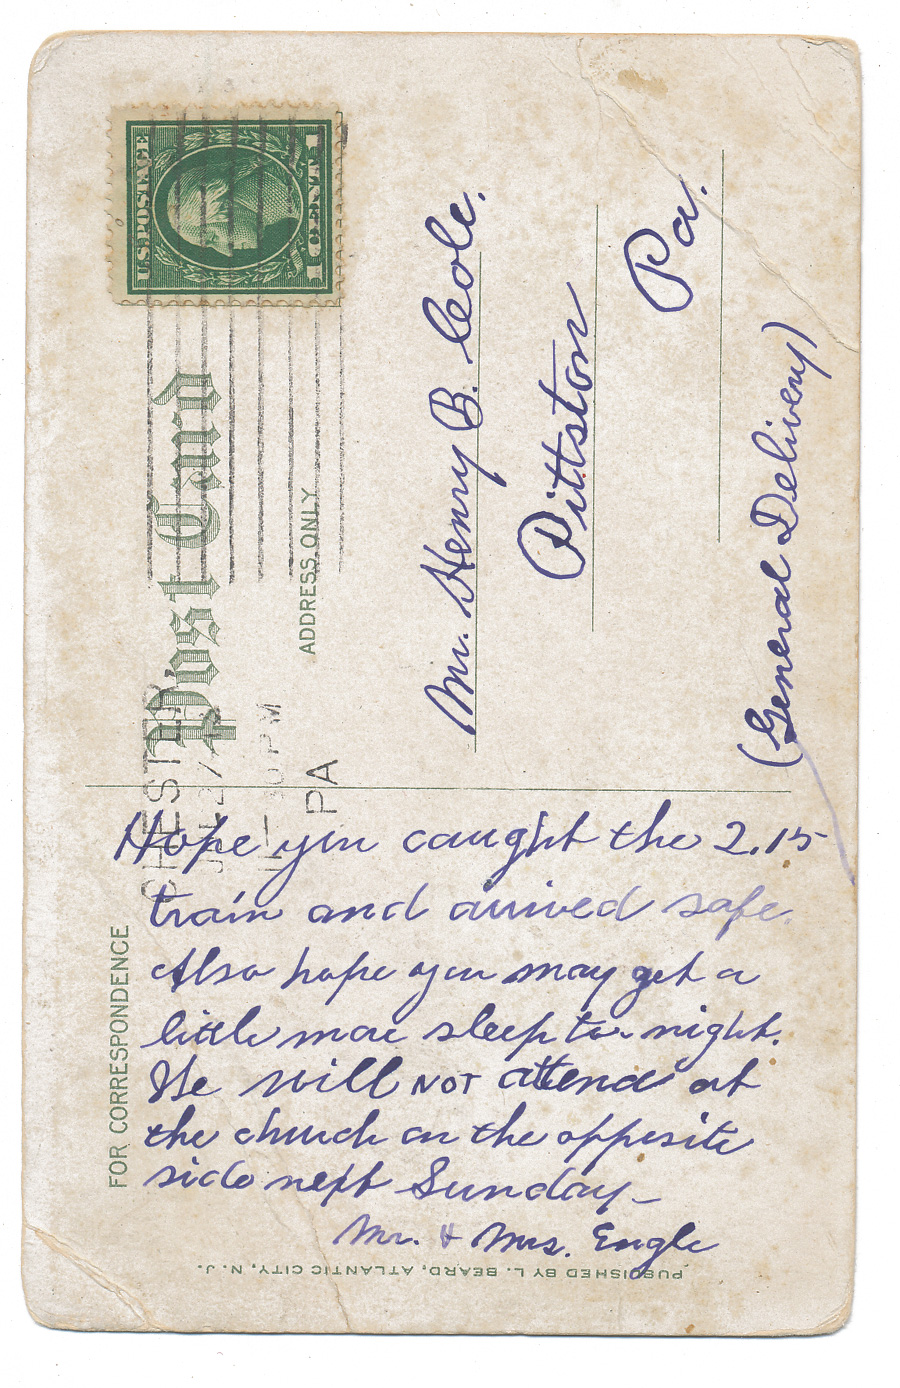 U.S. POSTAGE
1 CENT 1
Post Card
ADDRESS ONLY
CHESTER
PM
PA
Mr. Henry B. Cole.
Pittston
Pa.
(General Delivery)
FOR CORRESPONDENCE
Hope you caught the 2.15
train and arrived safe.
Also hope you may get a
little more sleep to-night.
We will NOT attend at
the church on the opposite
side next Sunday—
Mr. & Mrs. Engle
PUBLISHED BY L. BEARD, ATLANTIC CITY, N. J.